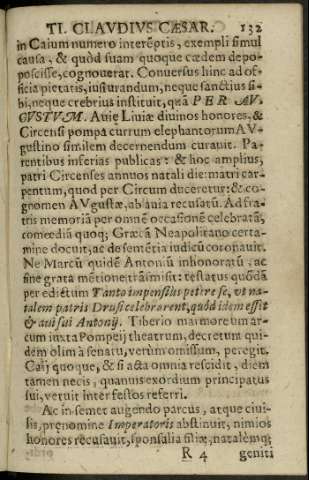 TI. CLAVDIVS CÆSAR. 132
in Caium numero interēptis, exempli simul
causa, & quòd suam quoque cædem depo-
poscisse, cognouerat. Conuersus hinc ad of-
ficia pietatis, iusiurandum, neque sanctius si-
bi, neque crebrius instituit, quā PER AV-
GVSTVM. Auię Liuiæ diuinos honores, &
Circensi pompa currum elephantorum AV-
gustino similem decernendum curauit. Pa-
rentibus inferias publicas: & hoc amplius,
patri Circenses annuos natali die: matri car-
pentum, quod per Circum duceretur: & co-
gnomen AVgustæ, ab auia recusatū. Ad fra-
tris memoriā per omnē occasionē celebratā,
comœdiā quoq; Græcā Neapolitano certa-
mine docuit, ac de sentētia iudicū coronauit.
Ne Marcū quidē Antoniū inhonoratū, ac
sine grata mētione trāsmisit: testatus quōdā
per edictum Tanto impensius petere se, vt na-
talem patris Drusi celebrarent, quòd idem esset
& aui sui Antonij. Tiberio marmoreum ar-
cum iuxta Pompeij theatrum, decretum qui-
dem olim à senatu, verùm omissum, peregit.
Caij quoque, & si acta omnia rescidit, diem
tamen necis, quanuis exordium principatus
sui, vetuit inter festos referri.
Ac in semet augendo parcus, atque ciui-
lis, prænomine Imperatoris abstinuit, nimios
honores recusauit, sponsalia filiæ, natalēmq;
R 4 geniti